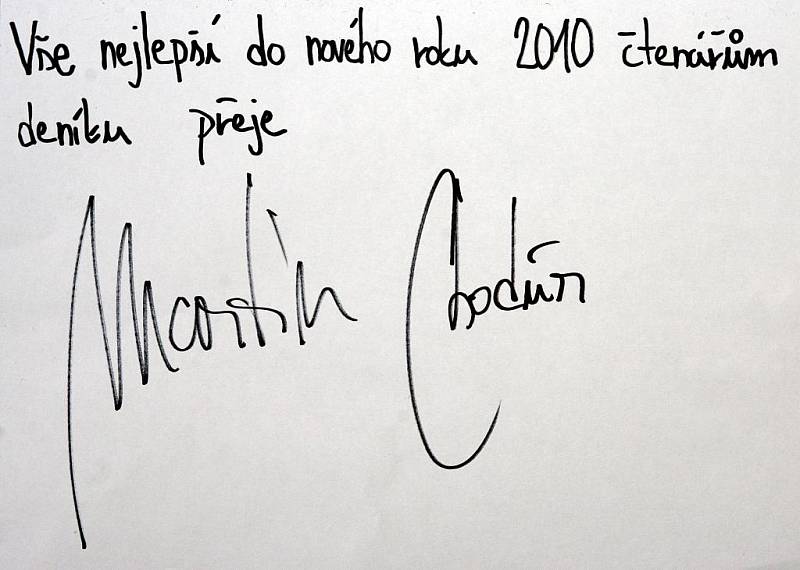 Vše nejlepší do nového roku 2010 čtenářům
deníku přeje
Martin Chodúr